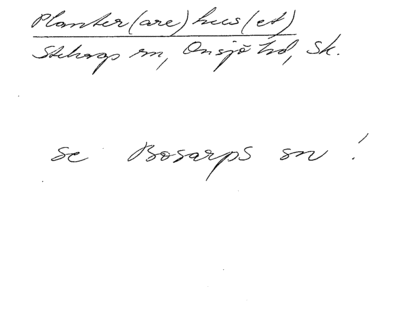 Planter(are)hus(et)
Stehags sn, Onsjö hd, Sk.
se Bosarps sn!